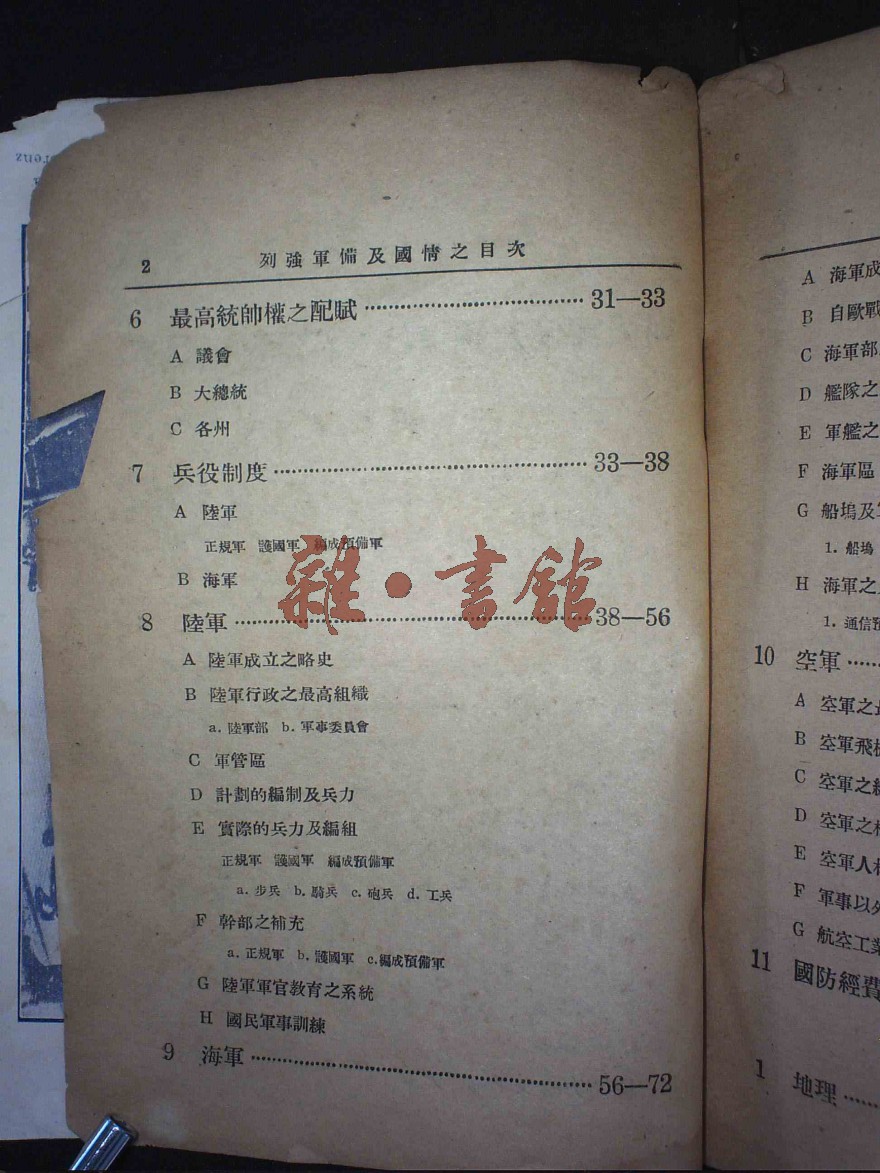 2 列強軍備及國情之目次
6 最高統帥權之配賦……31—33
A 議會
B 大總統
C 各州
7 兵役制度……33—38
A 陸軍
正規軍 護國軍 編成預備軍
B 海軍
雜·書館
8 陸軍……38—56
A 陸軍成立之略史
B 陸軍行政之最高組織
a. 陸軍部 b. 軍事委員會
C 軍管區
D 計劃的編制及兵力
E 實際的兵力及編組
正規軍 護國軍 編成預備軍
a. 步兵 b. 騎兵 c. 砲兵 d. 工兵
F 幹部之補充
a. 正規軍 b. 護國軍 c. 編成預備軍
G 陸軍軍官教育之系統
H 國民軍事訓練
9 海軍……56—72
A 海軍成
B 自歐戰
C 海軍部
D 艦隊之
E 軍艦之
F 海軍區
G 船塢及
1. 船塢
H 海軍之
1. 通信
10 空軍……
A 空軍之
B 空軍飛機
C 空軍之
D 空軍之
E 空軍人
F 軍事以
G 航空工業
11 國防經費
1 地理……